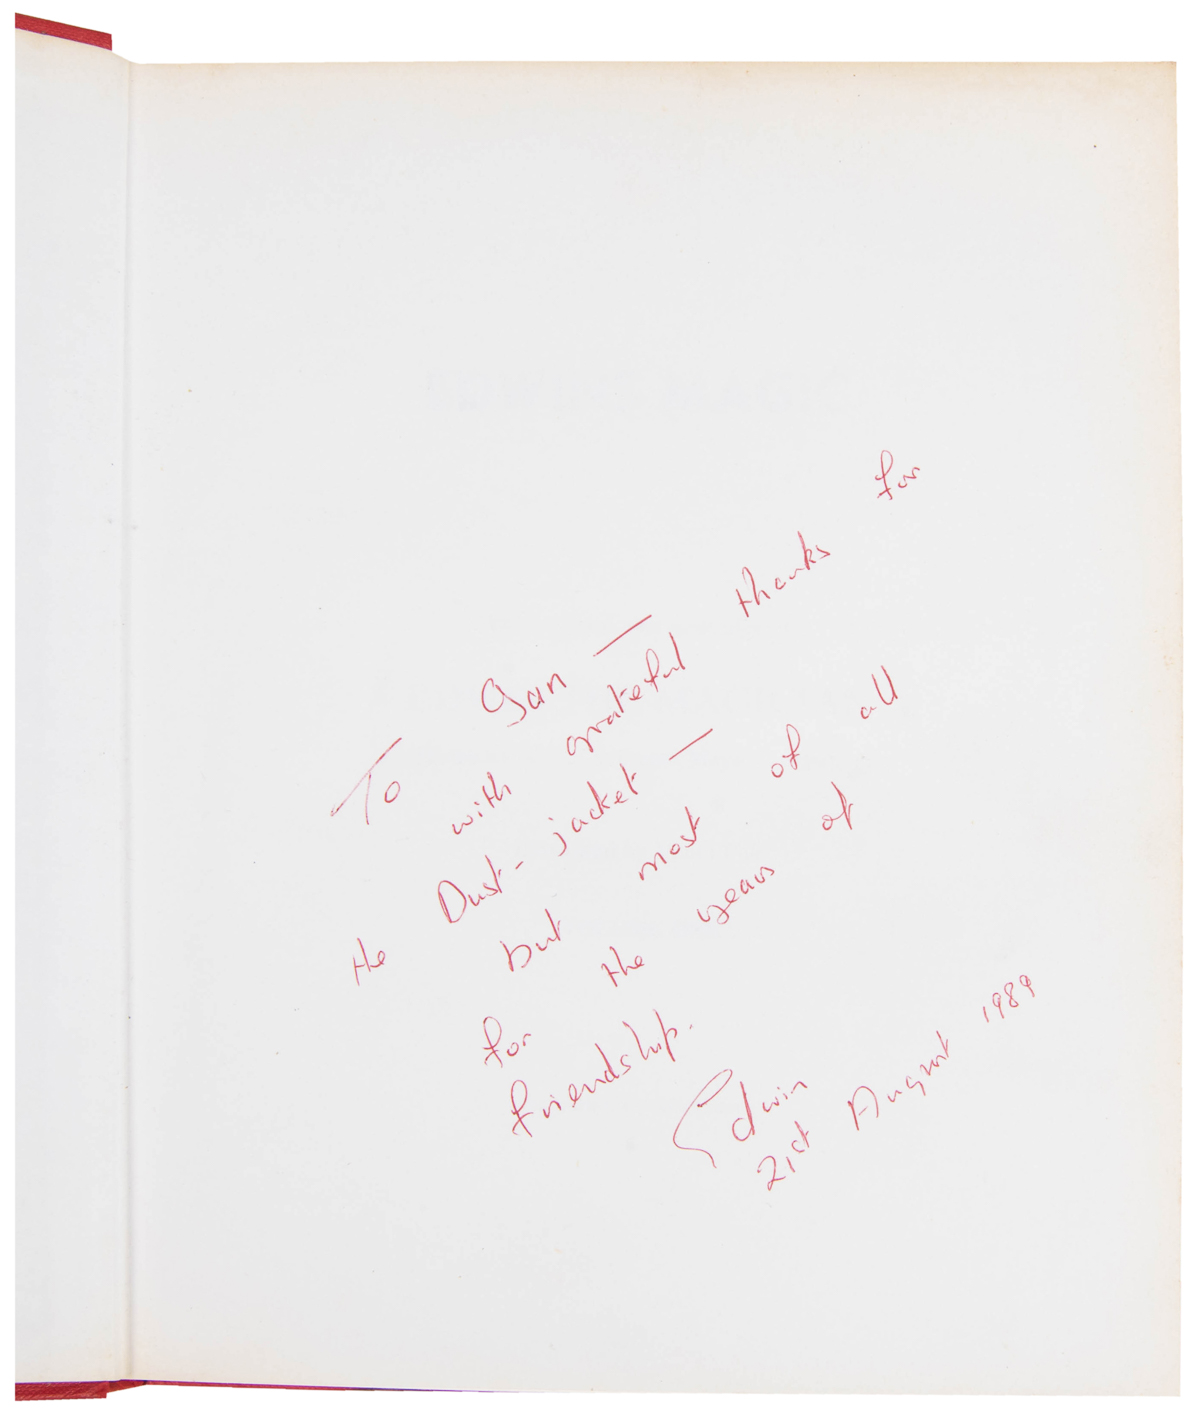 To Gan —
with grateful thanks for
the Dust-jacket —
but most of all
for the years of
friendship.
Edwin
21st August 1989